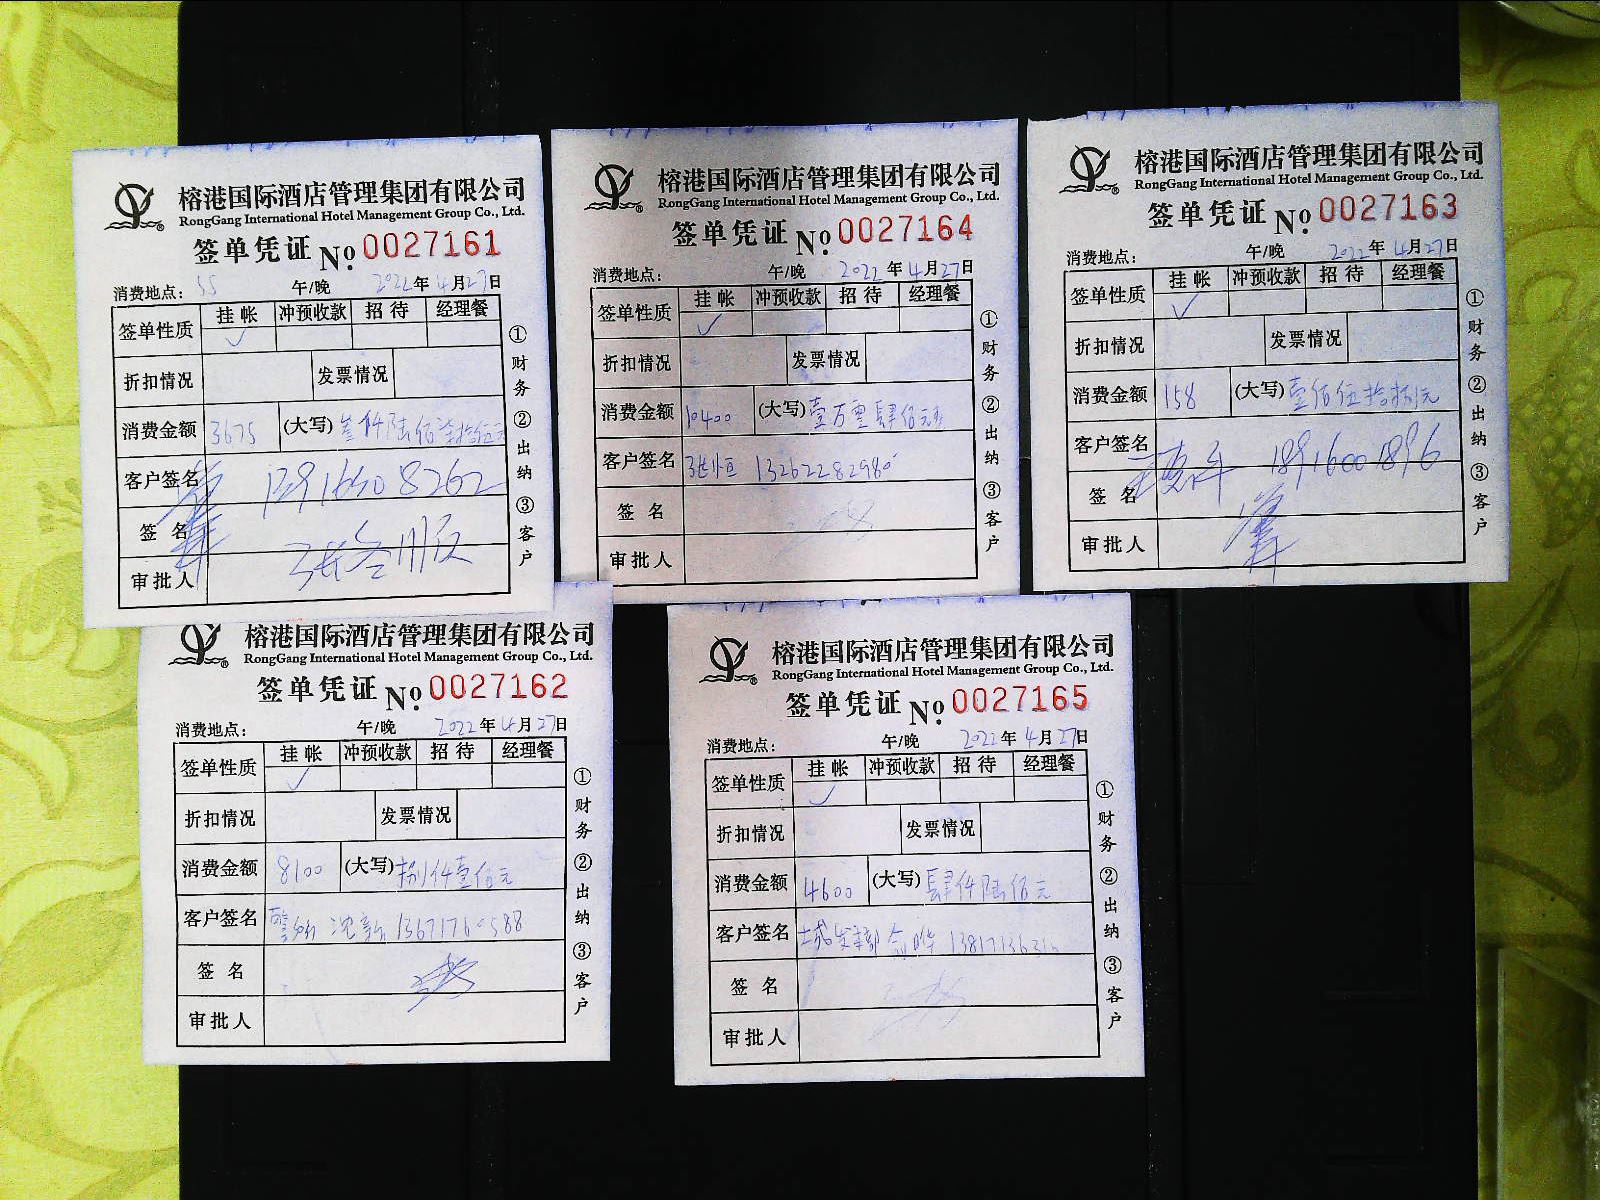 榕港国际酒店管理集团有限公司
RongGang International Hotel Management Group Co., Ltd.
签单凭证 No. 0027161
消费地点: 55 午/晚 2022年4月27日
签单性质 挂帐 冲预收款 招待 经理餐
✓
折扣情况 发票情况
消费金额 3675 (大写) 叁仟陆佰柒拾伍元
客户签名
签名
审批人
①财务 ②出纳 ③客户
榕港国际酒店管理集团有限公司
RongGang International Hotel Management Group Co., Ltd.
签单凭证 No. 0027164
消费地点: 午/晚 2022年4月27日
签单性质 挂帐 冲预收款 招待 经理餐
✓
折扣情况 发票情况
消费金额 10400 (大写) 壹万零肆佰元整
客户签名 张恒 13262282980
签名
审批人
①财务 ②出纳 ③客户
榕港国际酒店管理集团有限公司
RongGang International Hotel Management Group Co., Ltd.
签单凭证 No. 0027163
消费地点: 午/晚 2022年4月27日
签单性质 挂帐 冲预收款 招待 经理餐
✓
折扣情况 发票情况
消费金额 158 (大写) 壹佰伍拾捌元
客户签名 18916001896
签名
审批人
①财务 ②出纳 ③客户
榕港国际酒店管理集团有限公司
RongGang International Hotel Management Group Co., Ltd.
签单凭证 No. 0027162
消费地点: 午/晚 2022年4月27日
签单性质 挂帐 冲预收款 招待 经理餐
✓
折扣情况 发票情况
消费金额 8100 (大写) 捌仟壹佰元
客户签名 13671760588
签名
审批人
①财务 ②出纳 ③客户
榕港国际酒店管理集团有限公司
RongGang International Hotel Management Group Co., Ltd.
签单凭证 No. 0027165
消费地点: 午/晚 2022年4月27日
签单性质 挂帐 冲预收款 招待 经理餐
✓
折扣情况 发票情况
消费金额 4600 (大写) 肆仟陆佰元
客户签名 城发
签名
审批人
①财务 ②出纳 ③客户